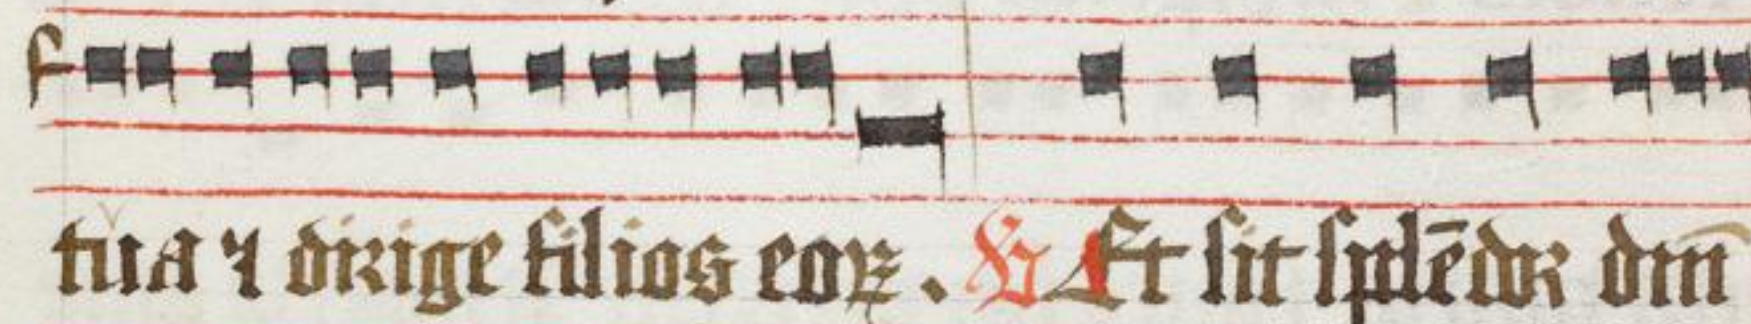 tua ⁊ dirige filios eoꝝ. ℟ Et sit splēdor dn̄i